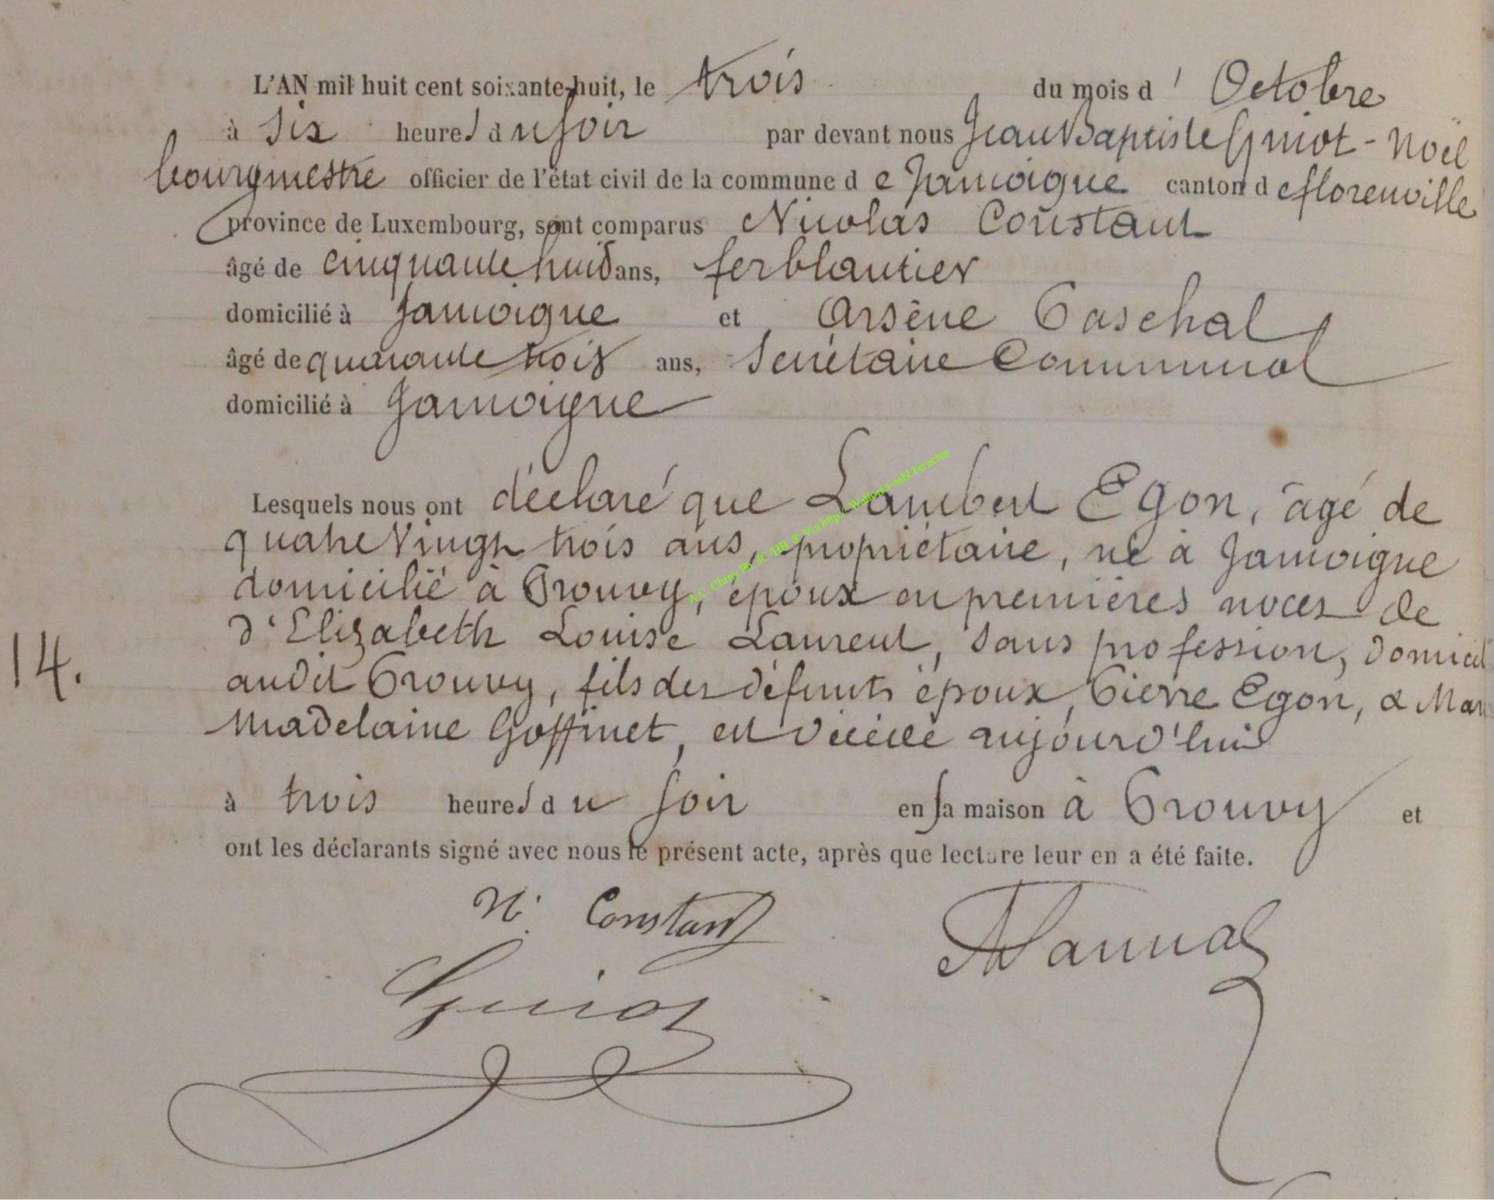 L'AN mil huit cent soixante-huit, le trois du mois d' Octobre
à six heures du soir par devant nous Jean Baptiste Guiot-Noël
bourgmestre officier de l'état civil de la commune de Jamoigne canton de florenville
province de Luxembourg, sont comparus Nicolas Constant
âgé de cinquante huit ans, ferblantier
domicilié à Jamoigne et Arsène Paschal
âgé de quarante trois ans, Secrétaire Communal
domicilié à Jamoigne
Lesquels nous ont déclaré que Lambert Egon, âgé de
quatre Vingt trois ans, propriétaire, né à Jamoigne
domicilié à Prouvy, époux en premières noces de
d'Elizabeth Louise Laurent, sans profession, domicil
14.
audit Prouvy, fils des défunts époux, Pierre Egon, & Mar
Madelaine Goffinet, est décédé aujourd'hui
à trois heures du soir en sa maison à Prouvy et
ont les déclarants signé avec nous le présent acte, après que lecture leur en a été faite.
N. Constant
Guiot